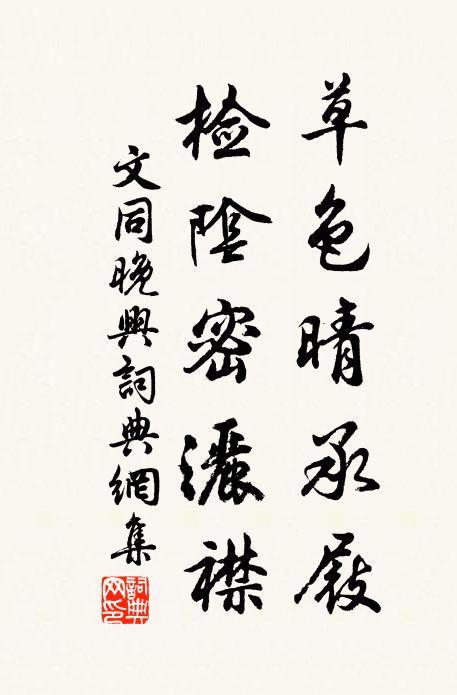 草色晴承屐
检陰密灑襟
文同晚興詞典網集
詞典网印